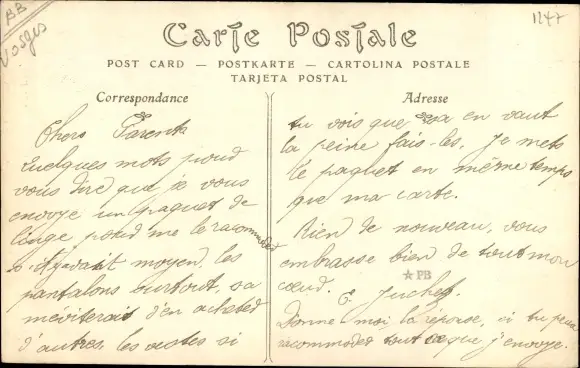 BB
Vosges
1247
Carte Postale
POST CARD — POSTKARTE — CARTOLINA POSTALE
TARJETA POSTAL
Correspondance
Chers Parents
Quelques mots pour
vous dire que je vous
envoye un paquet de
linge pour me le racommoder
s'il y avait moyen, les
pantalons surtout, sa
m'eviterait d'en acheter
d'autres, les vestes si
Adresse
tu vois que sa en vaut
la peine fais-les. Je mets
le paquet en même temps
que ma carte.
Rien de nouveau, vous
embrasse bien de tout mon
cœur. E.
★PB
Donne-moi la réponse, si tu peux
racommoder tout ce que j'envoye.